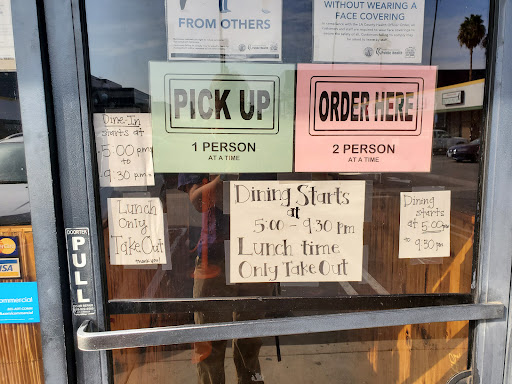 FROM OTHERS
WITHOUT WEARING A
FACE COVERING
PICK UP
1 PERSON
AT A TIME
ORDER HERE
2 PERSON
AT A TIME
Dine-In
starts at
5:00 pm
to
9:30 pm
Lunch
Only
Take Out
thank you
Dining Starts
at
5:00 - 9:30 pm
Lunch time
Only Take Out
Dining
starts
at 5:00 pm
to 9:30 pm
PULL
VISA